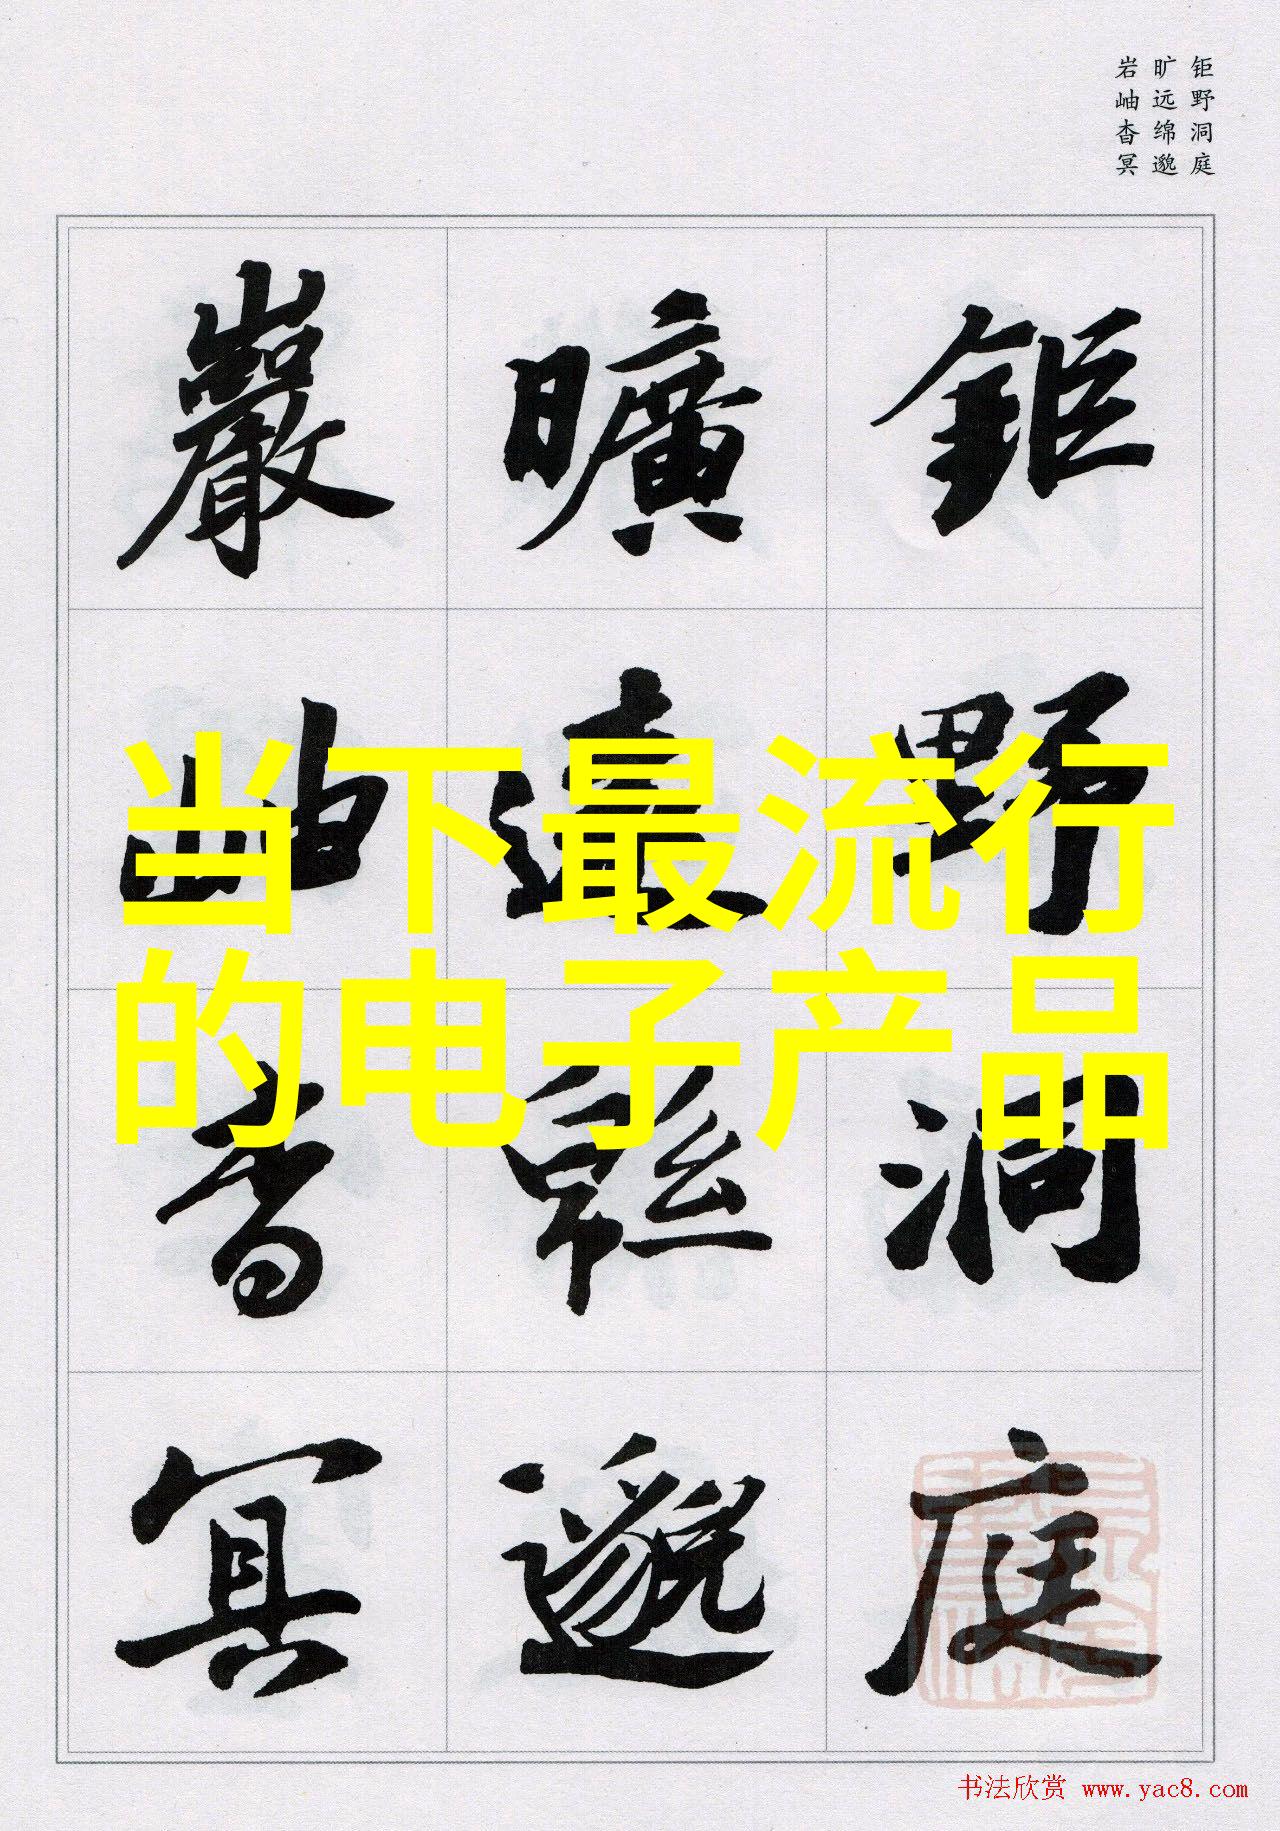 钜野洞庭
旷远绵邈
岩岫杳冥
鉅野洞庭
曠遠緜邈
巖岫杳冥
当下最流行
的电子产品
书法欣赏 www.yac8.com